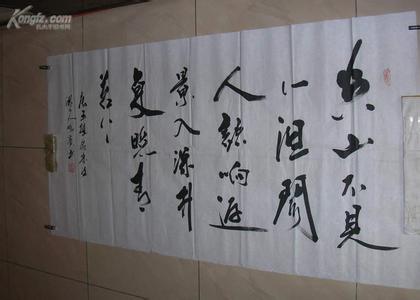 Kongfz.com
孔夫子旧书网
空山不見
人但聞
人語响返
景入深林
复照青
苔上
唐王維